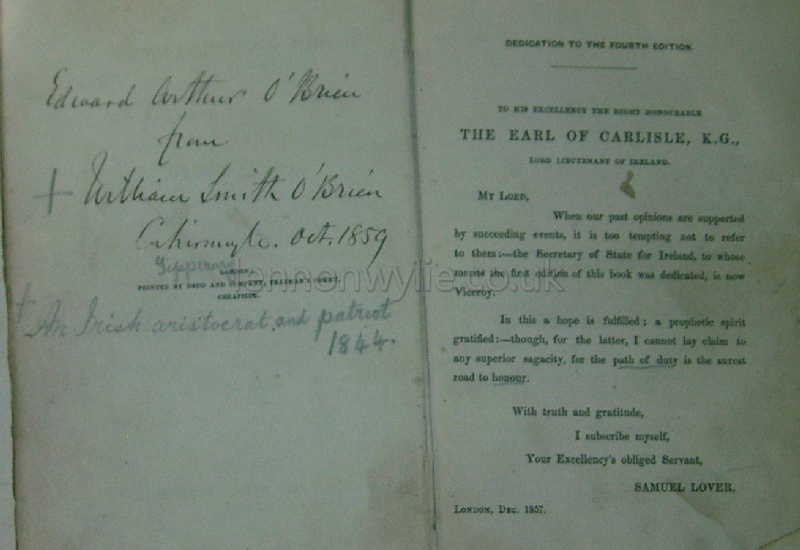 Edward Arthur O'Brien
from
+ William Smith O'Brien
Cahirmoyle. Oct. 1859
Tipperary
LONDON:
PRINTED BY DADD AND COMPANY, PELLIPAR COURT,
CHEAPSIDE.
+ An Irish aristocrat and patriot
1844.
DEDICATION TO THE FOURTH EDITION.
TO HIS EXCELLENCY THE RIGHT HONOURABLE
THE EARL OF CARLISLE, K.G.,
LORD LIEUTENANT OF IRELAND.
MY LORD,
When our past opinions are supported
by succeeding events, it is too tempting not to refer
to them:—the Secretary of State for Ireland, to whose
merits the first edition of this book was dedicated, is now
Viceroy.
In this a hope is fulfilled; a prophetic spirit
gratified:—though, for the latter, I cannot lay claim to
any superior sagacity, for the path of duty is the surest
road to honour.
With truth and gratitude,
I subscribe myself,
Your Excellency's obliged Servant,
SAMUEL LOVER.
LONDON, DEC. 1857.
lennonwylie.co.uk